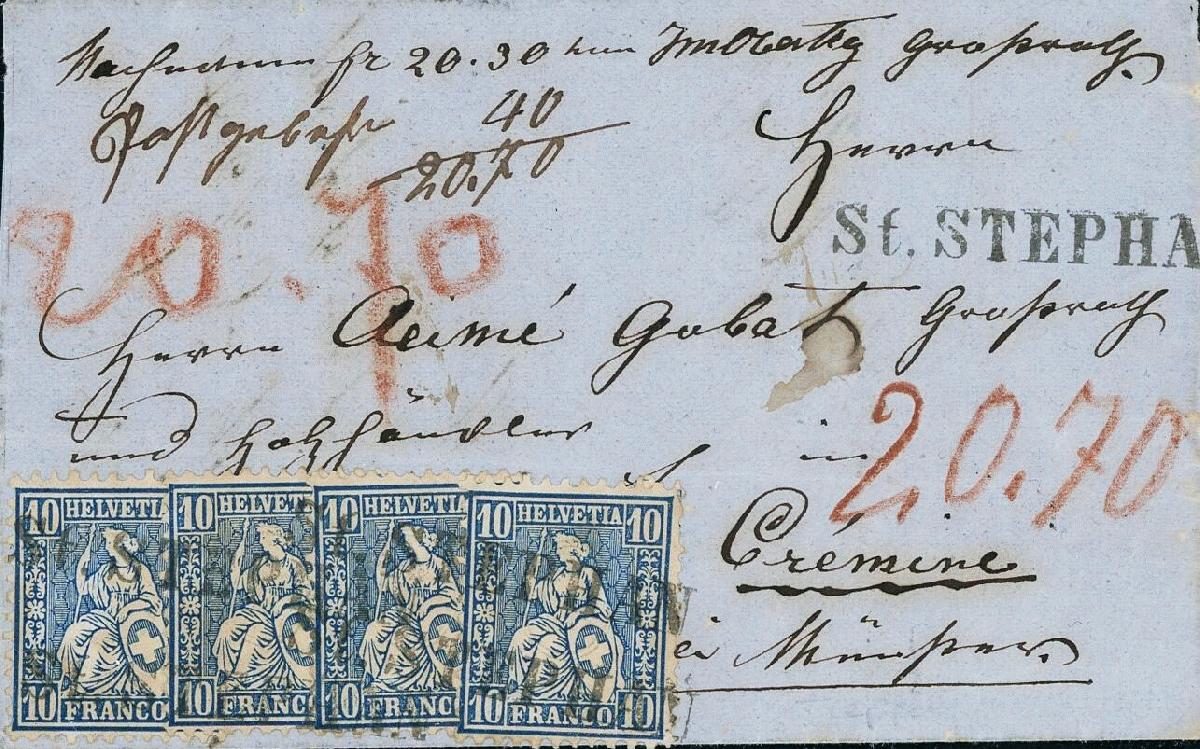 Nachnahme fr 20.30 von Imobstig Großrath
Postgebühr 40
20.70
Herrn
St. STEPHA
20.70
Herrn Aeimé Gobat Großrath
und Holzhändler in
20.70
Crémine
bei Münster.
10 HELVETIA
10 HELVETIA
10 HELVETIA
10 HELVETIA 10
St. STEPHAN
St. STEPHAN
10 FRANCO
10 FRANCO
10 FRANCO
10 FRANCO 10